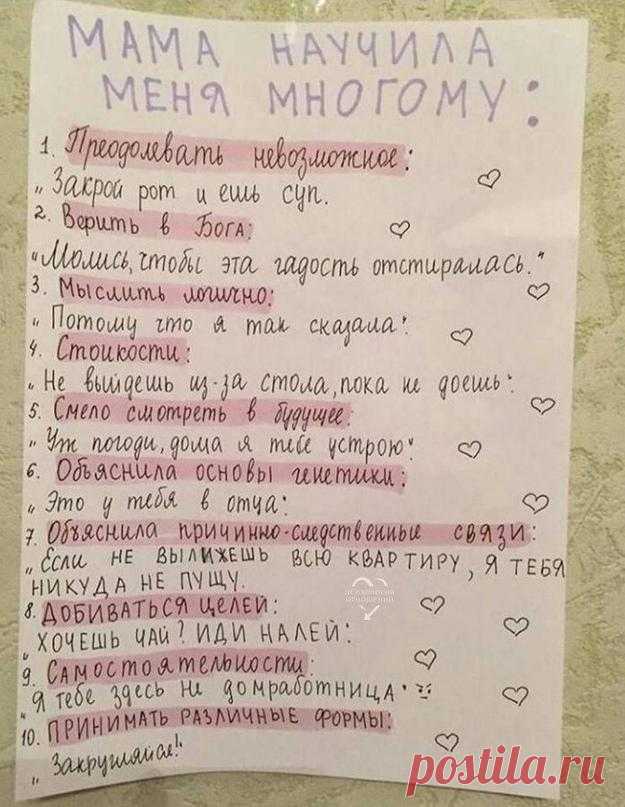 МАМА НАУЧИЛА
МЕНЯ МНОГОМУ:
1. Преодолевать невозможное:
„ Закрой рот и ешь суп.
2. Верить в Бога:
"Молись, чтобы эта гадость отстиралась."
3. Мыслить логично:
„ Потому что я так сказала".
4. Стойкости:
„ Не выйдешь из-за стола, пока не доешь".
5. Смело смотреть в будущее:
„ Уж погоди, дома я тебе устрою".
6. Объяснила основы генетики:
„ Это у тебя в отца".
7. Объяснила причинно-следственные связи:
„ Если НЕ ВЫЛИЖЕШЬ ВСЮ КВАРТИРУ, Я ТЕБЯ
НИКУДА НЕ ПУЩУ.
8. ДОБИВАТЬСЯ ЦЕЛЕЙ:
„ ХОЧЕШЬ ЧАЙ? ИДИ НАЛЕЙ".
9. Самостоятельности:
„ Я тебе здесь не домработница".
10. ПРИНИМАТЬ РАЗЛИЧНЫЕ ФОРМЫ:
„ Закругляйся!"
postila.ru